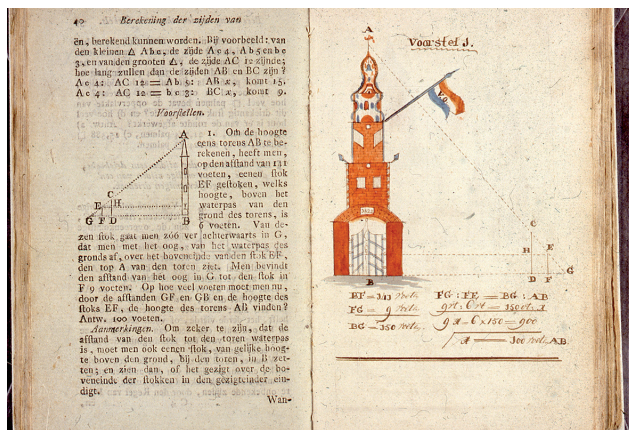 40 Berekening der zijden van
ën, berekend kunnen worden. Bij voorbeeld: van
den kleinen Δ Abc, de zijde Ac 4, Ab 5 en bc
3, en van den grooten Δ, de zijde AC 12 zijnde;
hoe lang zullen dan de zijden AB en BC zijn?
Ac 4: AC 12 = Ab 5: AB x, komt 15.
Ac 4: AC 12 = bc 3: BC x, komt 9.
Voorstellen.
1. Om de hoogte
eens torens AB te be-
rekenen, heeft men,
op den afstand van 141
voeten, eenen stok
EF gestoken, welks
hoogte, boven het
waterpas van den
grond des torens, is
6 voeten. Van de-
zen stok gaat men zóó ver achterwaarts in G,
dat men met het oog, van het waterpas des
gronds af, over het boveneinde van den stok EF,
den top A van den toren ziet. Men bevindt
den afstand van het oog in G tot den stok in
F 9 voeten. Op hoe veel voeten moet men nu,
door de afstanden GF en GB en de hoogte des
stoks EF, de hoogte des torens AB vinden?
Antw. 100 voeten.
Aanmerkingen. Om zeker te zijn, dat de
afstand van den stok tot den toren waterpas
is, moet men ook eenen stok, van gelijke hoog-
te boven den grond, bij den toren, in B zet-
ten; en zien dan, of het gezigt over de bo-
veneinde der stokken in den gezigteinder ein-
digt.
Wan-
A
C
E H
G F D B
Voorstel 1.
A
C
H E
D F G
B
FG = 9 voete
FG : FE = BG : AB
9 x = 6 x 150 = 900
x = 100 voete AB